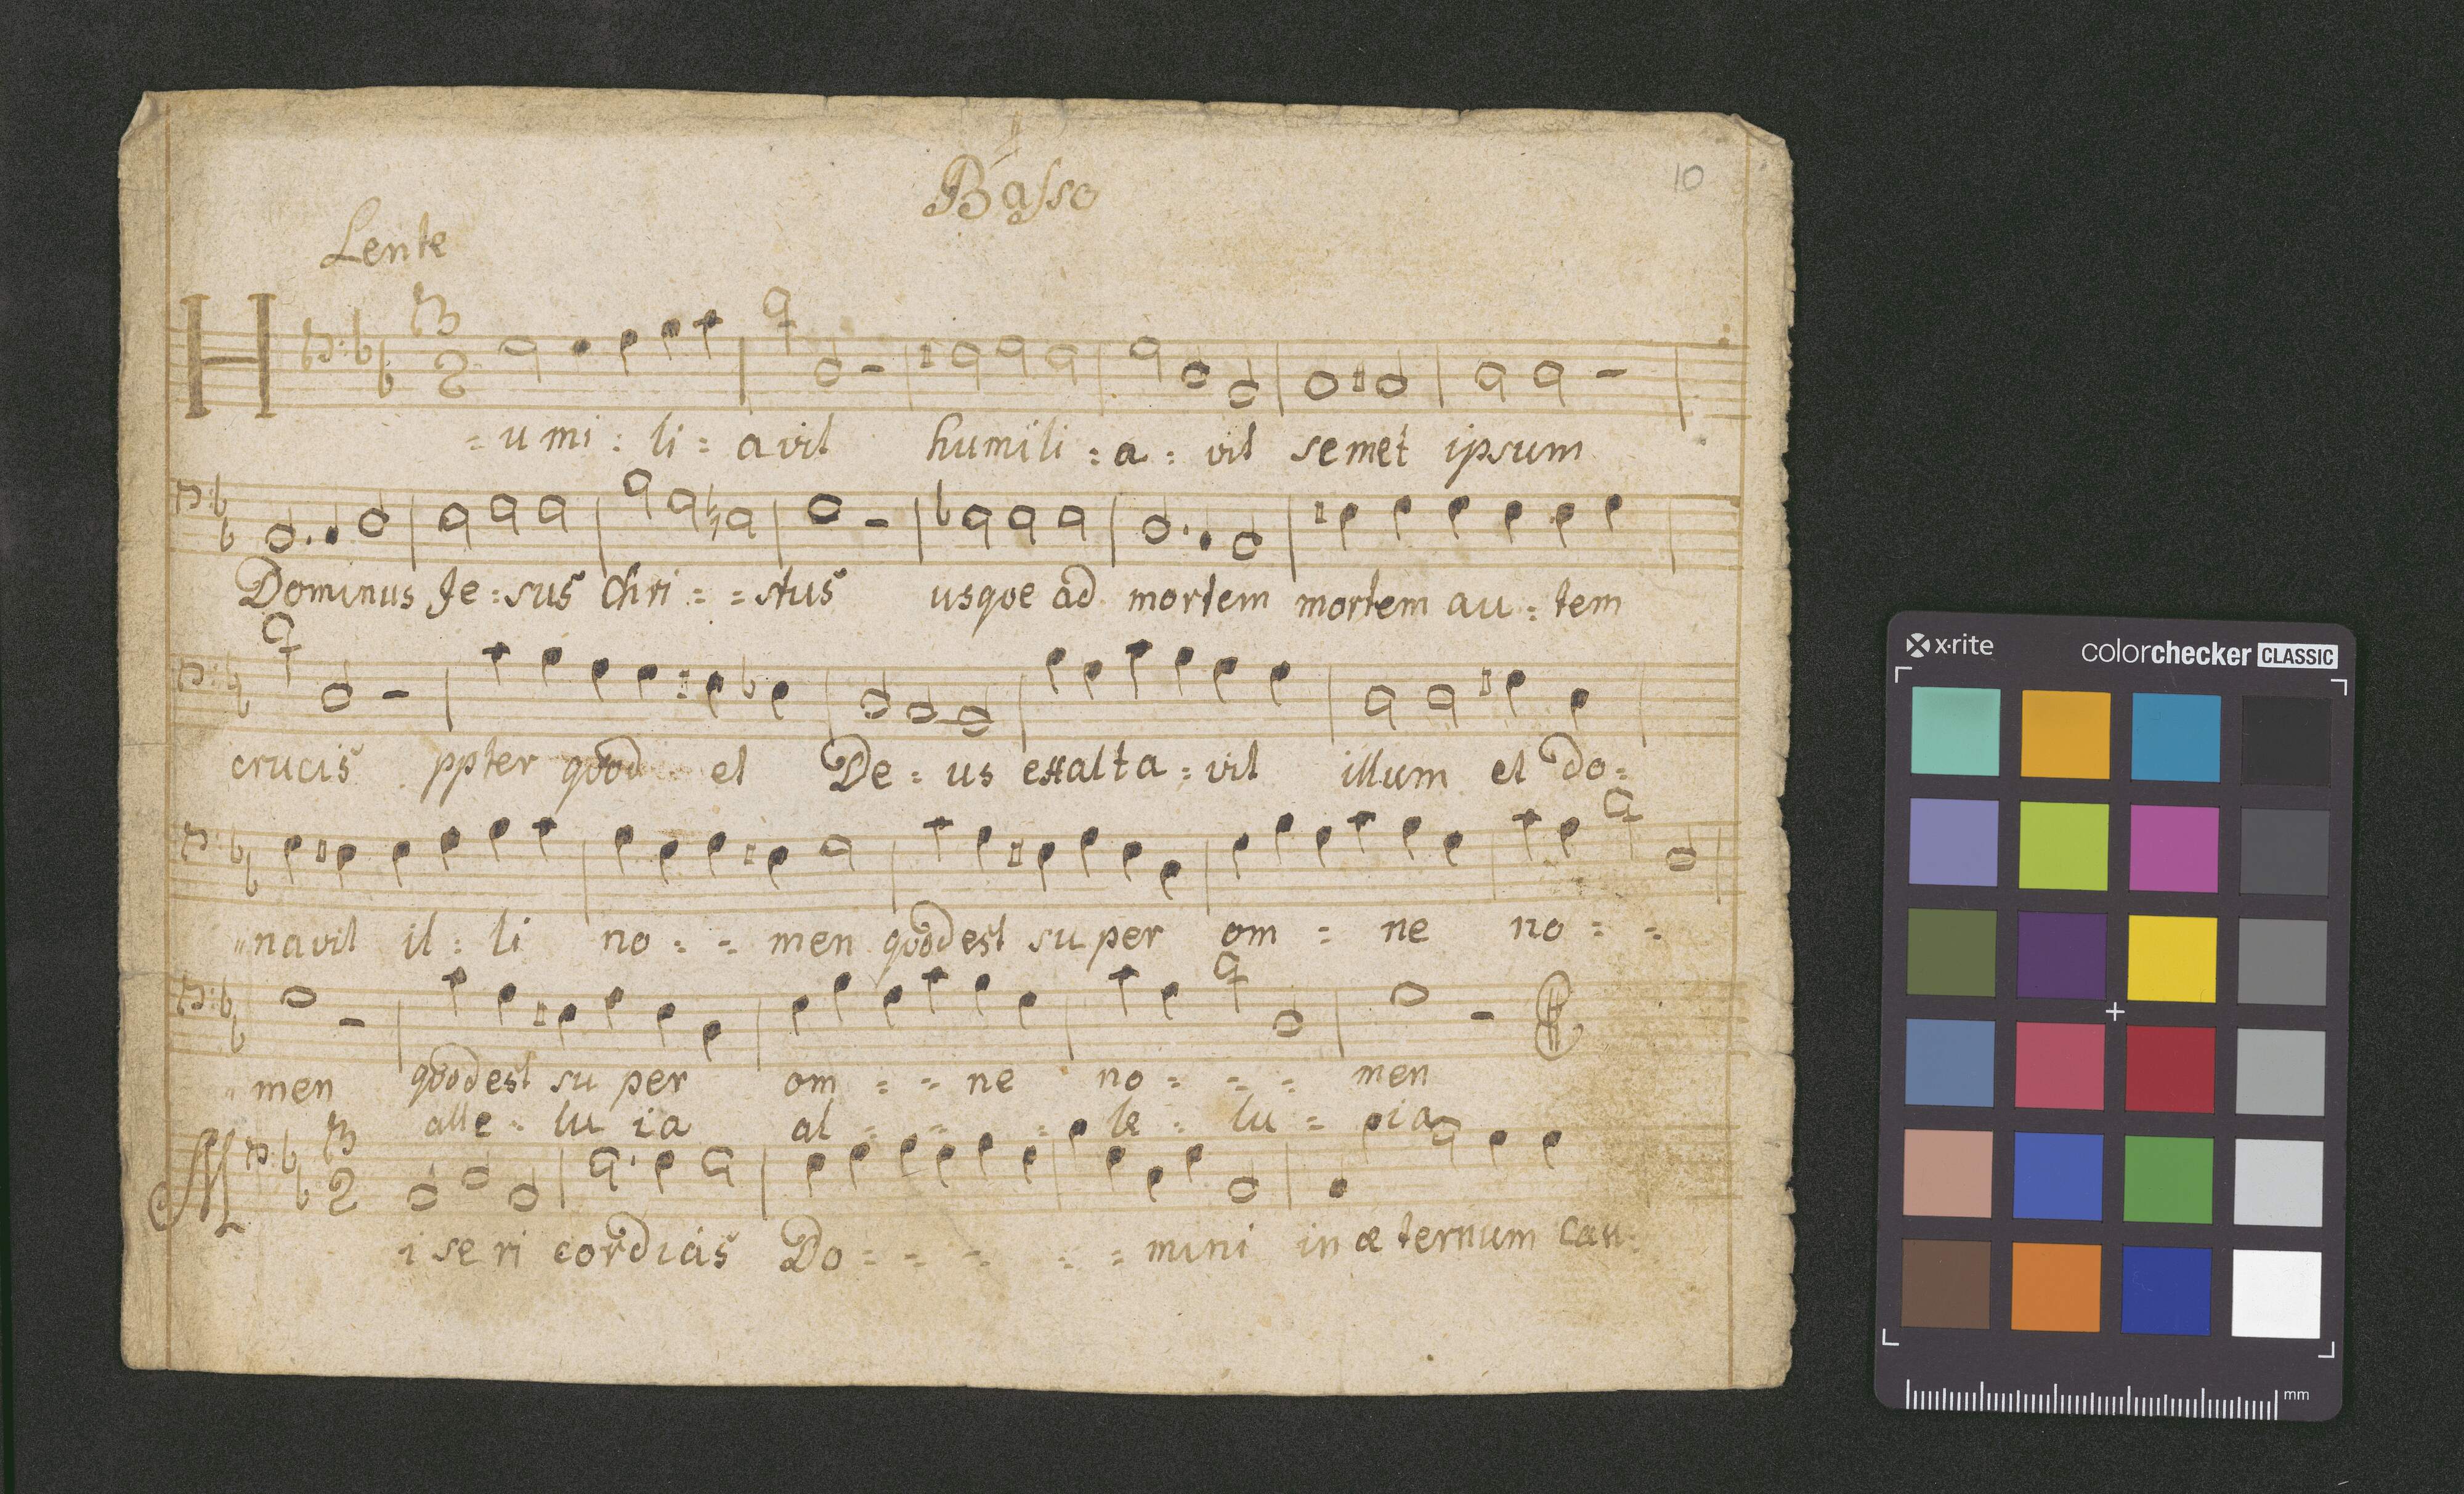 Basso
10
Lente
3
2
H = umi : li : a vit humili : a : vit semet ipsum
Dominus Je : sus Chri = = stus usque ad mortem mortem au : tem
crucis ppter quod et De : us exalta : vit illum et do :
navit il : li no = = men quod est super om = ne no = =
men quod est super om = = ne no = = = men
alle : lu ia al = = = le = lu = ia
3
2
M iseri cordias Do = = = = = mini in æternum can :
x·rite
colorchecker CLASSIC
mm